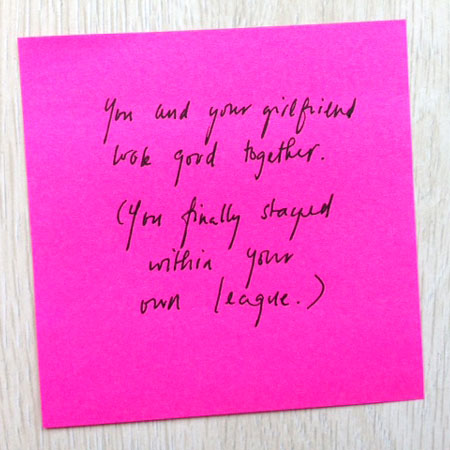 You and your girlfriend
look good together.
(You finally stayed
within your
own league.)